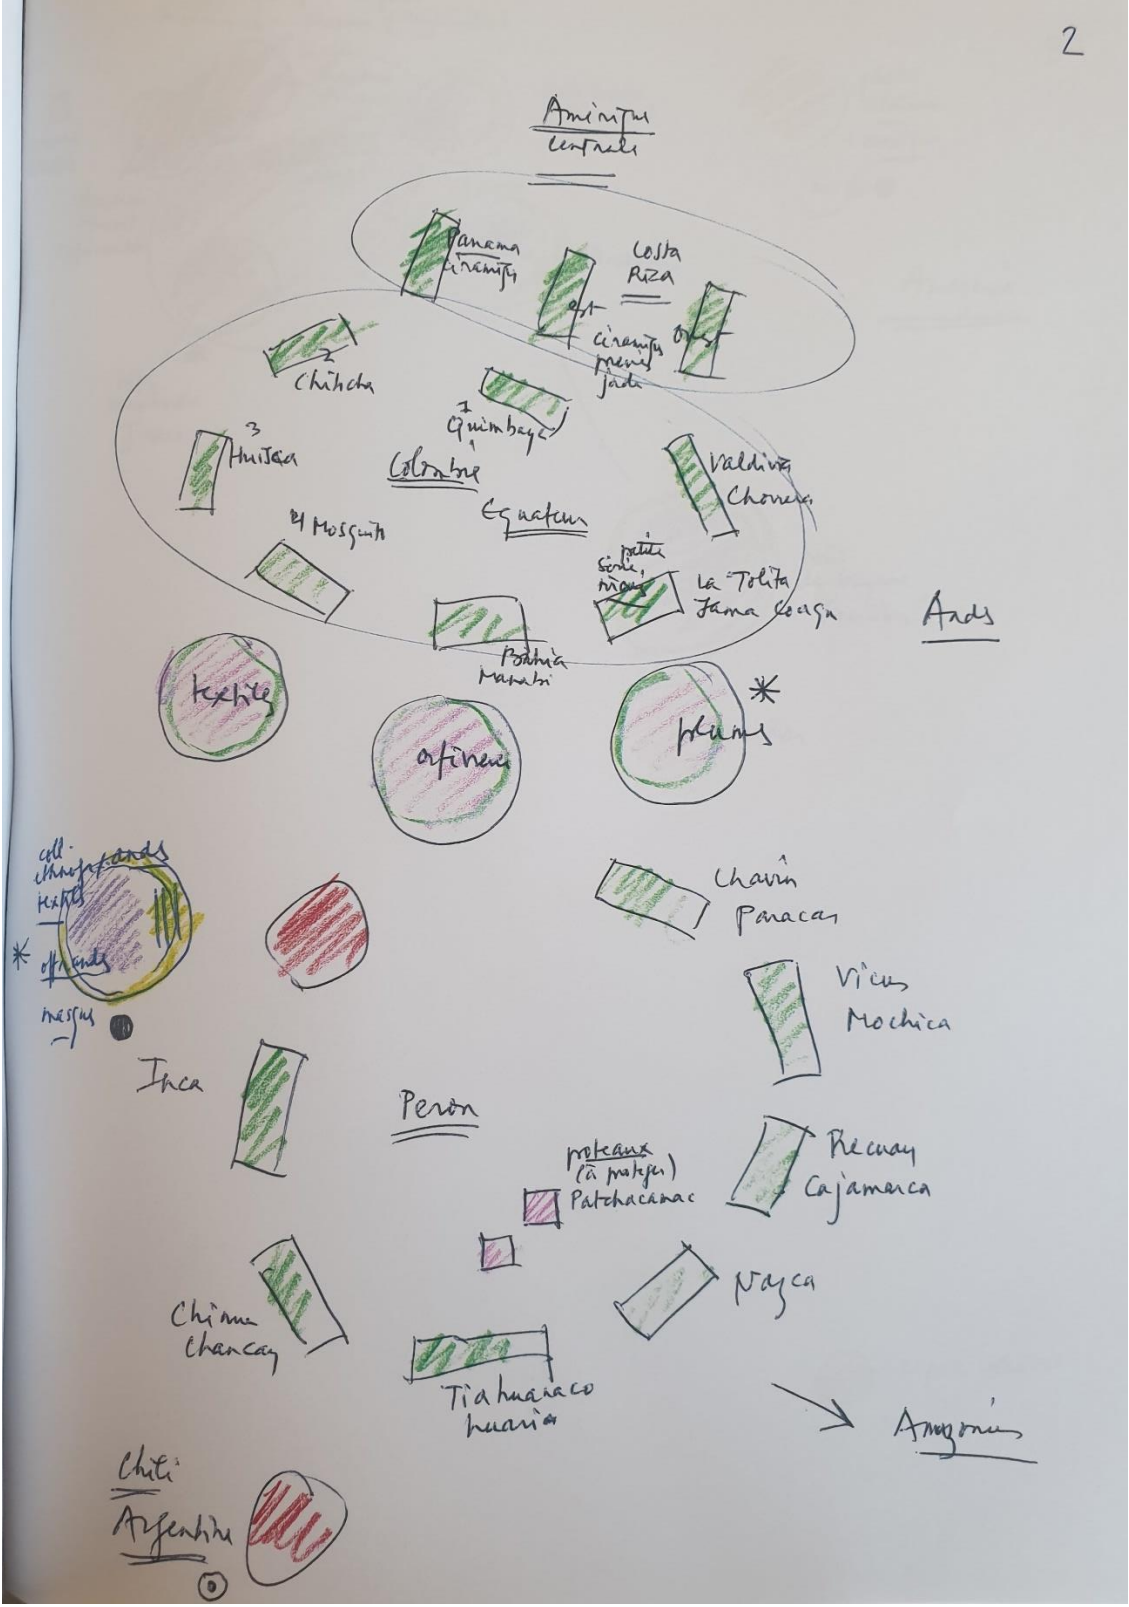 2
Amérique
centrale
Panama
céramiqs
Costa
Rica
est
ouest
céramiqs
jade
2
Chibcha
1
Quimbaya
3
Muisca
Colombie
Equateur
Valdivia
Chorrera
4 Mosquito
petite
La Tolita
Jama Coaqu
Andes
Bahia
Manabi
textiles
orfèvrerie
plumes
*
coll.
ethnogr. andes
textiles
*
offrandes
masques
Chavin
Paracas
Vicus
Mochica
Inca
Perou
poteaux
(à protéger)
Patchacamac
Recuay
Cajamarca
Nazca
Chimu
Chancay
Tiahuanaco
huari
Amazonies
Chili
Argentine